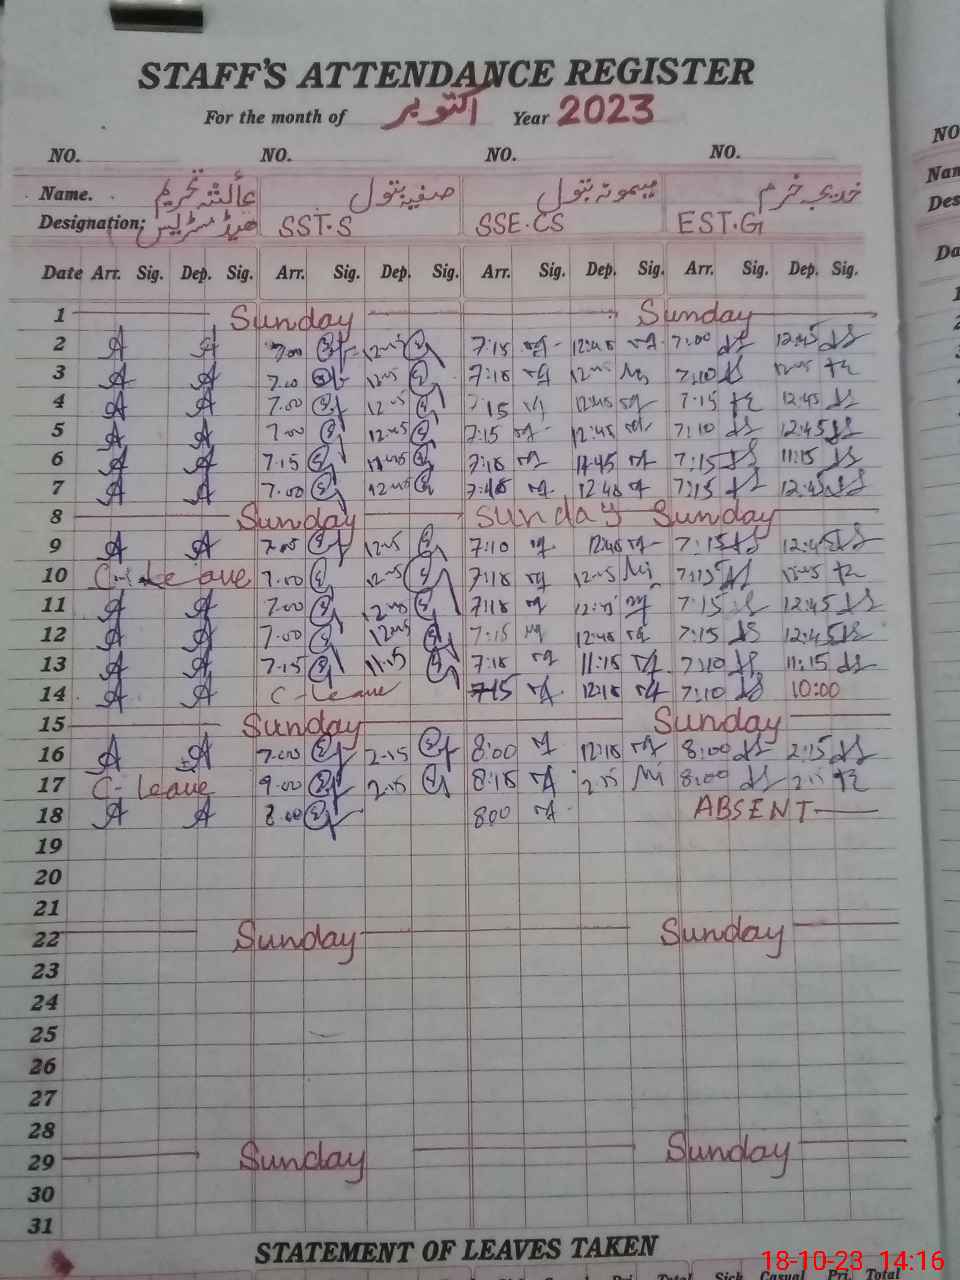 STAFF'S ATTENDANCE REGISTER
For the month of اکتوبر Year 2023
NO. NO. NO. NO.
Name. عائشہ تحریم صفیہ بتول میمونہ بتول خدیجہ خرم
Designation: ہیڈ مسٹریس SST.S SSE.CS EST.G
Date Arr. Sig. Dep. Sig. Arr. Sig. Dep. Sig. Arr. Sig. Dep. Sig. Arr. Sig. Dep. Sig.
1 Sunday Sunday
2 A A 7.00 12:45 7:15 12:45 7:00 12:45
3 A A 7.00 12:45 7:15 12:45 7:10 12:45
4 A A 7.00 12:45 7:15 12:45 7:15 12:45
5 A A 7.00 12:45 7:15 12:45 7:10 12:45
6 A A 7.15 7:15 11:45 7:15 11:15
7 A A 7.00 12:45 12:45 7:15 12:45
8 Sunday Sunday Sunday
9 A A 7.05 12:45 7:10 12:45 7:15 12:45
10 C-Leave 7.00 12:45 7:15 12:45 7:15 12:45
11 A A 7.00 12:45 7:15 12:45 7:15 12:45
12 A A 7.00 12:45 7:15 12:45 7:15 12:45
13 A A 7.15 11.15 7:15 11:15 7:10 11:15
14 A A C-Leave 7:15 12:15 7:10 10:00
15 Sunday Sunday
16 A A 7.00 2.15 8:00 12:15 8:00 2:15
17 C-Leave 2.15 8:15 2:15 8:00 2:15
18 A A 8.00 8:00 ABSENT
19
20
21
22 Sunday Sunday
23
24
25
26
27
28
29 Sunday Sunday
30
31
STATEMENT OF LEAVES TAKEN
Sick Casual Pri. Total
18-10-23 14:16
NO
Nam
Des
Da